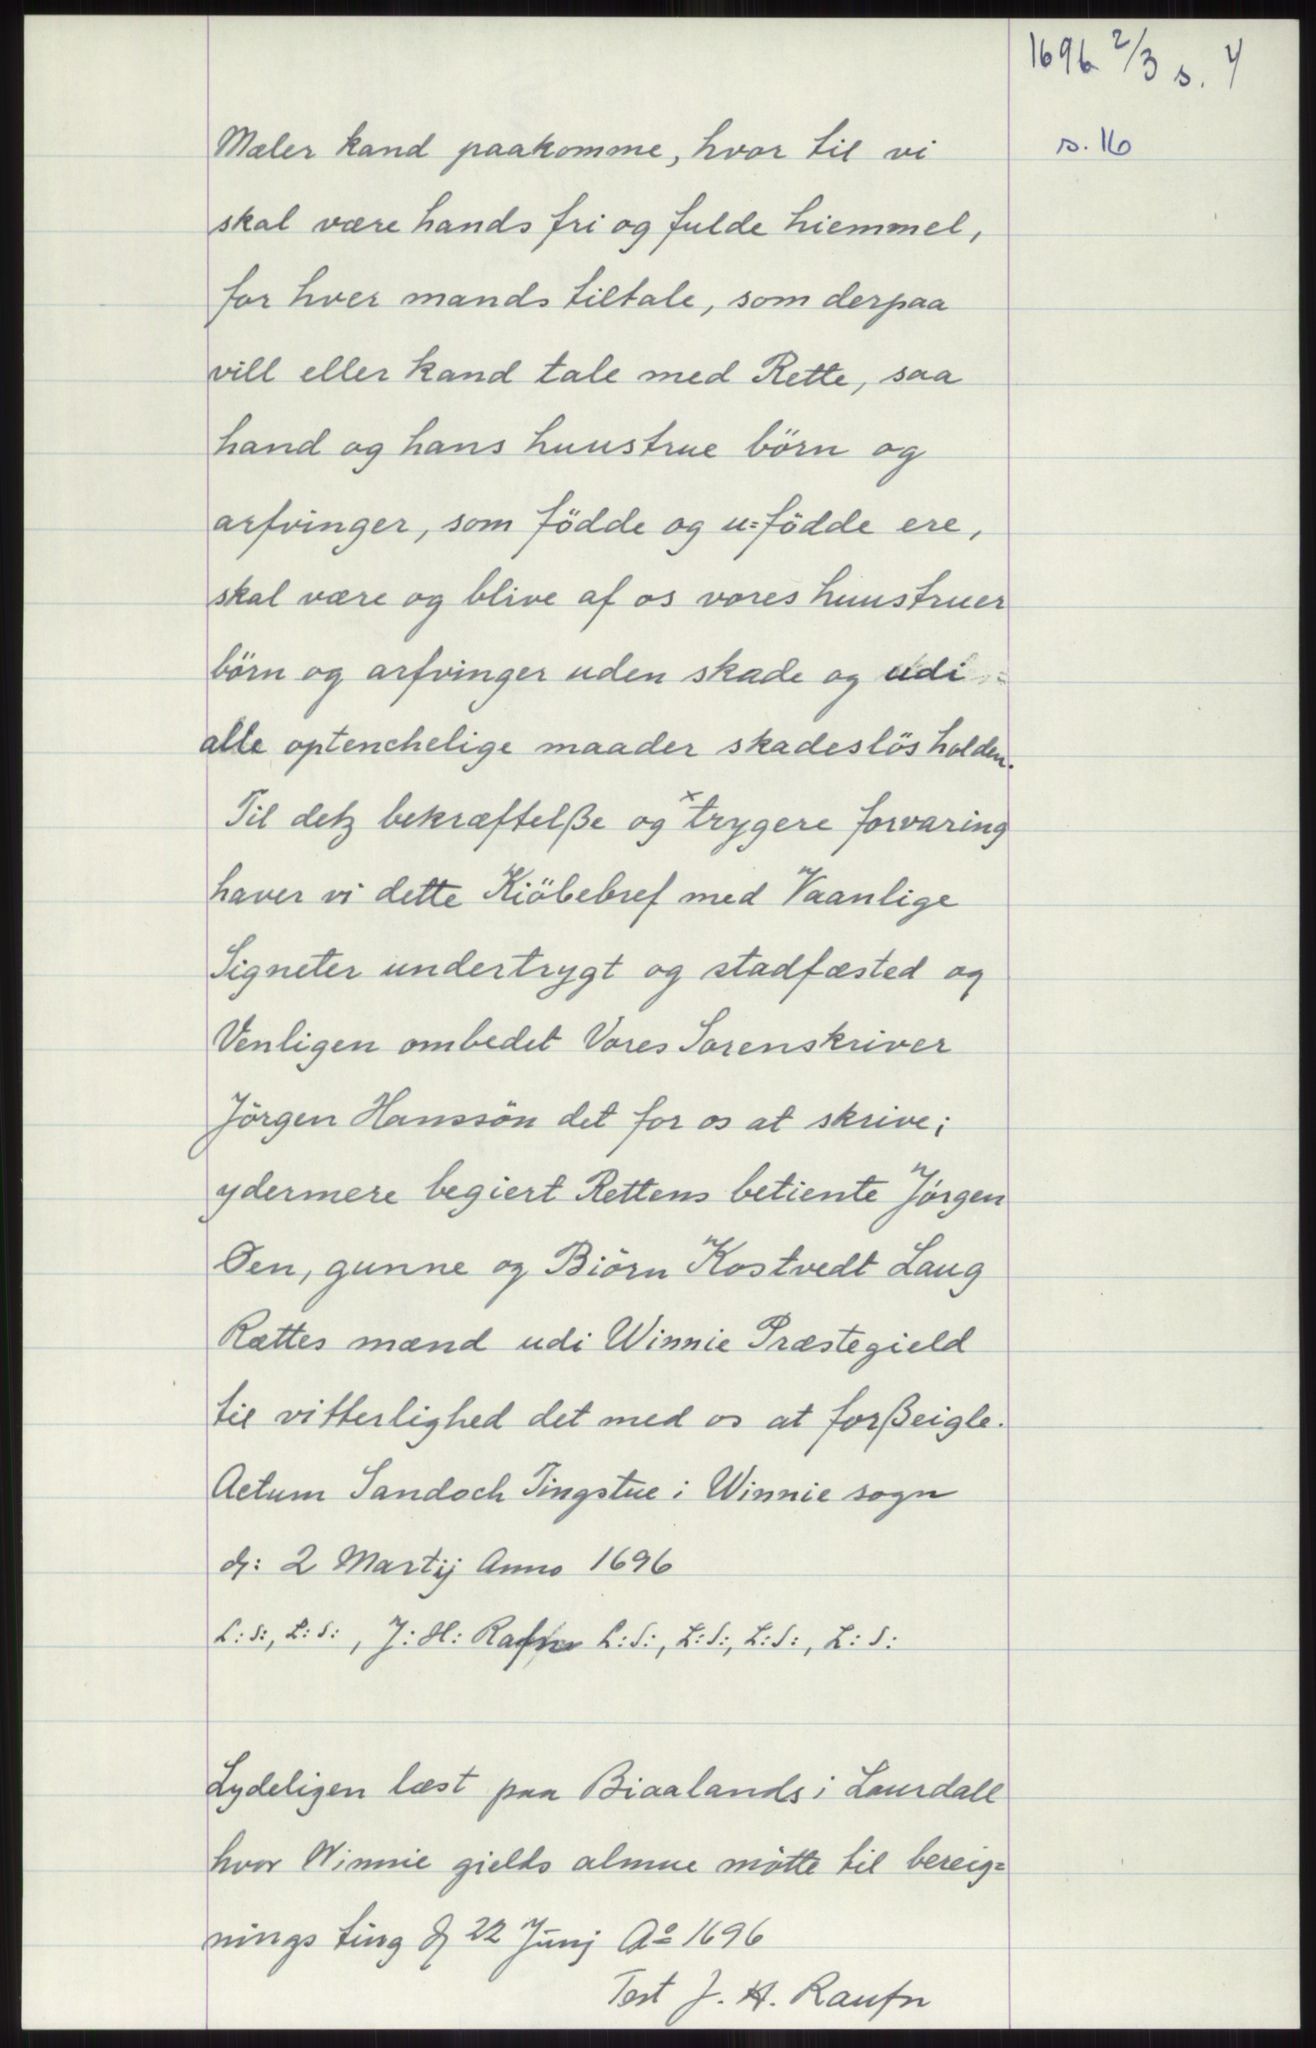 1696 2/3 s. 4
s. 16
Mæler kand paakomme, hvor til vi
skal være hands fri og fulde hiemmel,
for hver mands tiltale, som derpaa
vill eller kand tale med Rette, saa
hand og hans huustrue börn og
arfvinger, som födde og u=födde ere,
skal være og blive af os vores huustruer
börn og arfvinger uden skade og udi
alle optenchelige maader skadeslös holden.
Til detz bekræftelße og x trygere forvaring
haver vi dette Kiöbebref med Vaanlige
Signeter undertrygt og stadfæsted og
Venligen ombedet Vores Sorenskriver
Jörgen Hanssön det for os at skrive;
ydermere begiert Rettens betiente Jörgen
Øen, gunne og Biörn Kostvedt Laug
Rættes mænd udi Winnie Præstegield
til vitterlighed det med os at forßeigle.
Actum Sandoch Tingstue i Winnie sogn
d: 2 Martij Anno 1696
L:S:, L:S:, J: H: Rafn L:S:, L:S:, L:S:, L:S:
Lydeligen læst paa Biaalands i Laurdall
hvor Winnie gields almue mötte til bereig=
nings ting d 22 Junj Ao 1696
Test J. H. Raufn